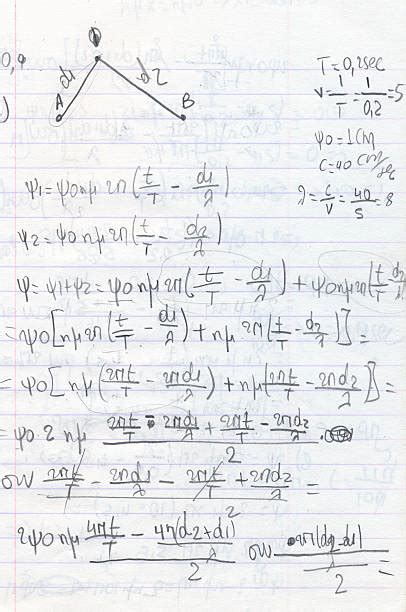 0,9
d1
d2
A
B
T=0,2sec
ν=1/T=1/0,2=5
ψ0=1CM
C=40 CM/sec
λ=C/ν=40/5=8
ψ1=ψ0 ημ 2π(t/T - d1/λ)
ψ2=ψ0 ημ 2π(t/T - d2/λ)
ψ=ψ1+ψ2=ψ0 ημ 2π(t/T - d1/λ)+ψ0 ημ 2π(t/T - d2/λ)
=ψ0[ημ 2π(t/T - d1/λ)+ημ 2π(t/T - d2/λ)]=
=ψ0[ημ(2πt/T - 2πd1/λ)+ημ(2πt/T - 2πd2/λ)]=
=ψ0 2 ημ (2πt/T - 2πd1/λ + 2πt/T - 2πd2/λ)/2 .
συν (2πt/T - 2πd1/λ - 2πt/T + 2πd2/λ)/2 =
2ψ0 ημ (4πt/T - 4π(d2+d1))/2 συν 2π(d2-d1)/2 =